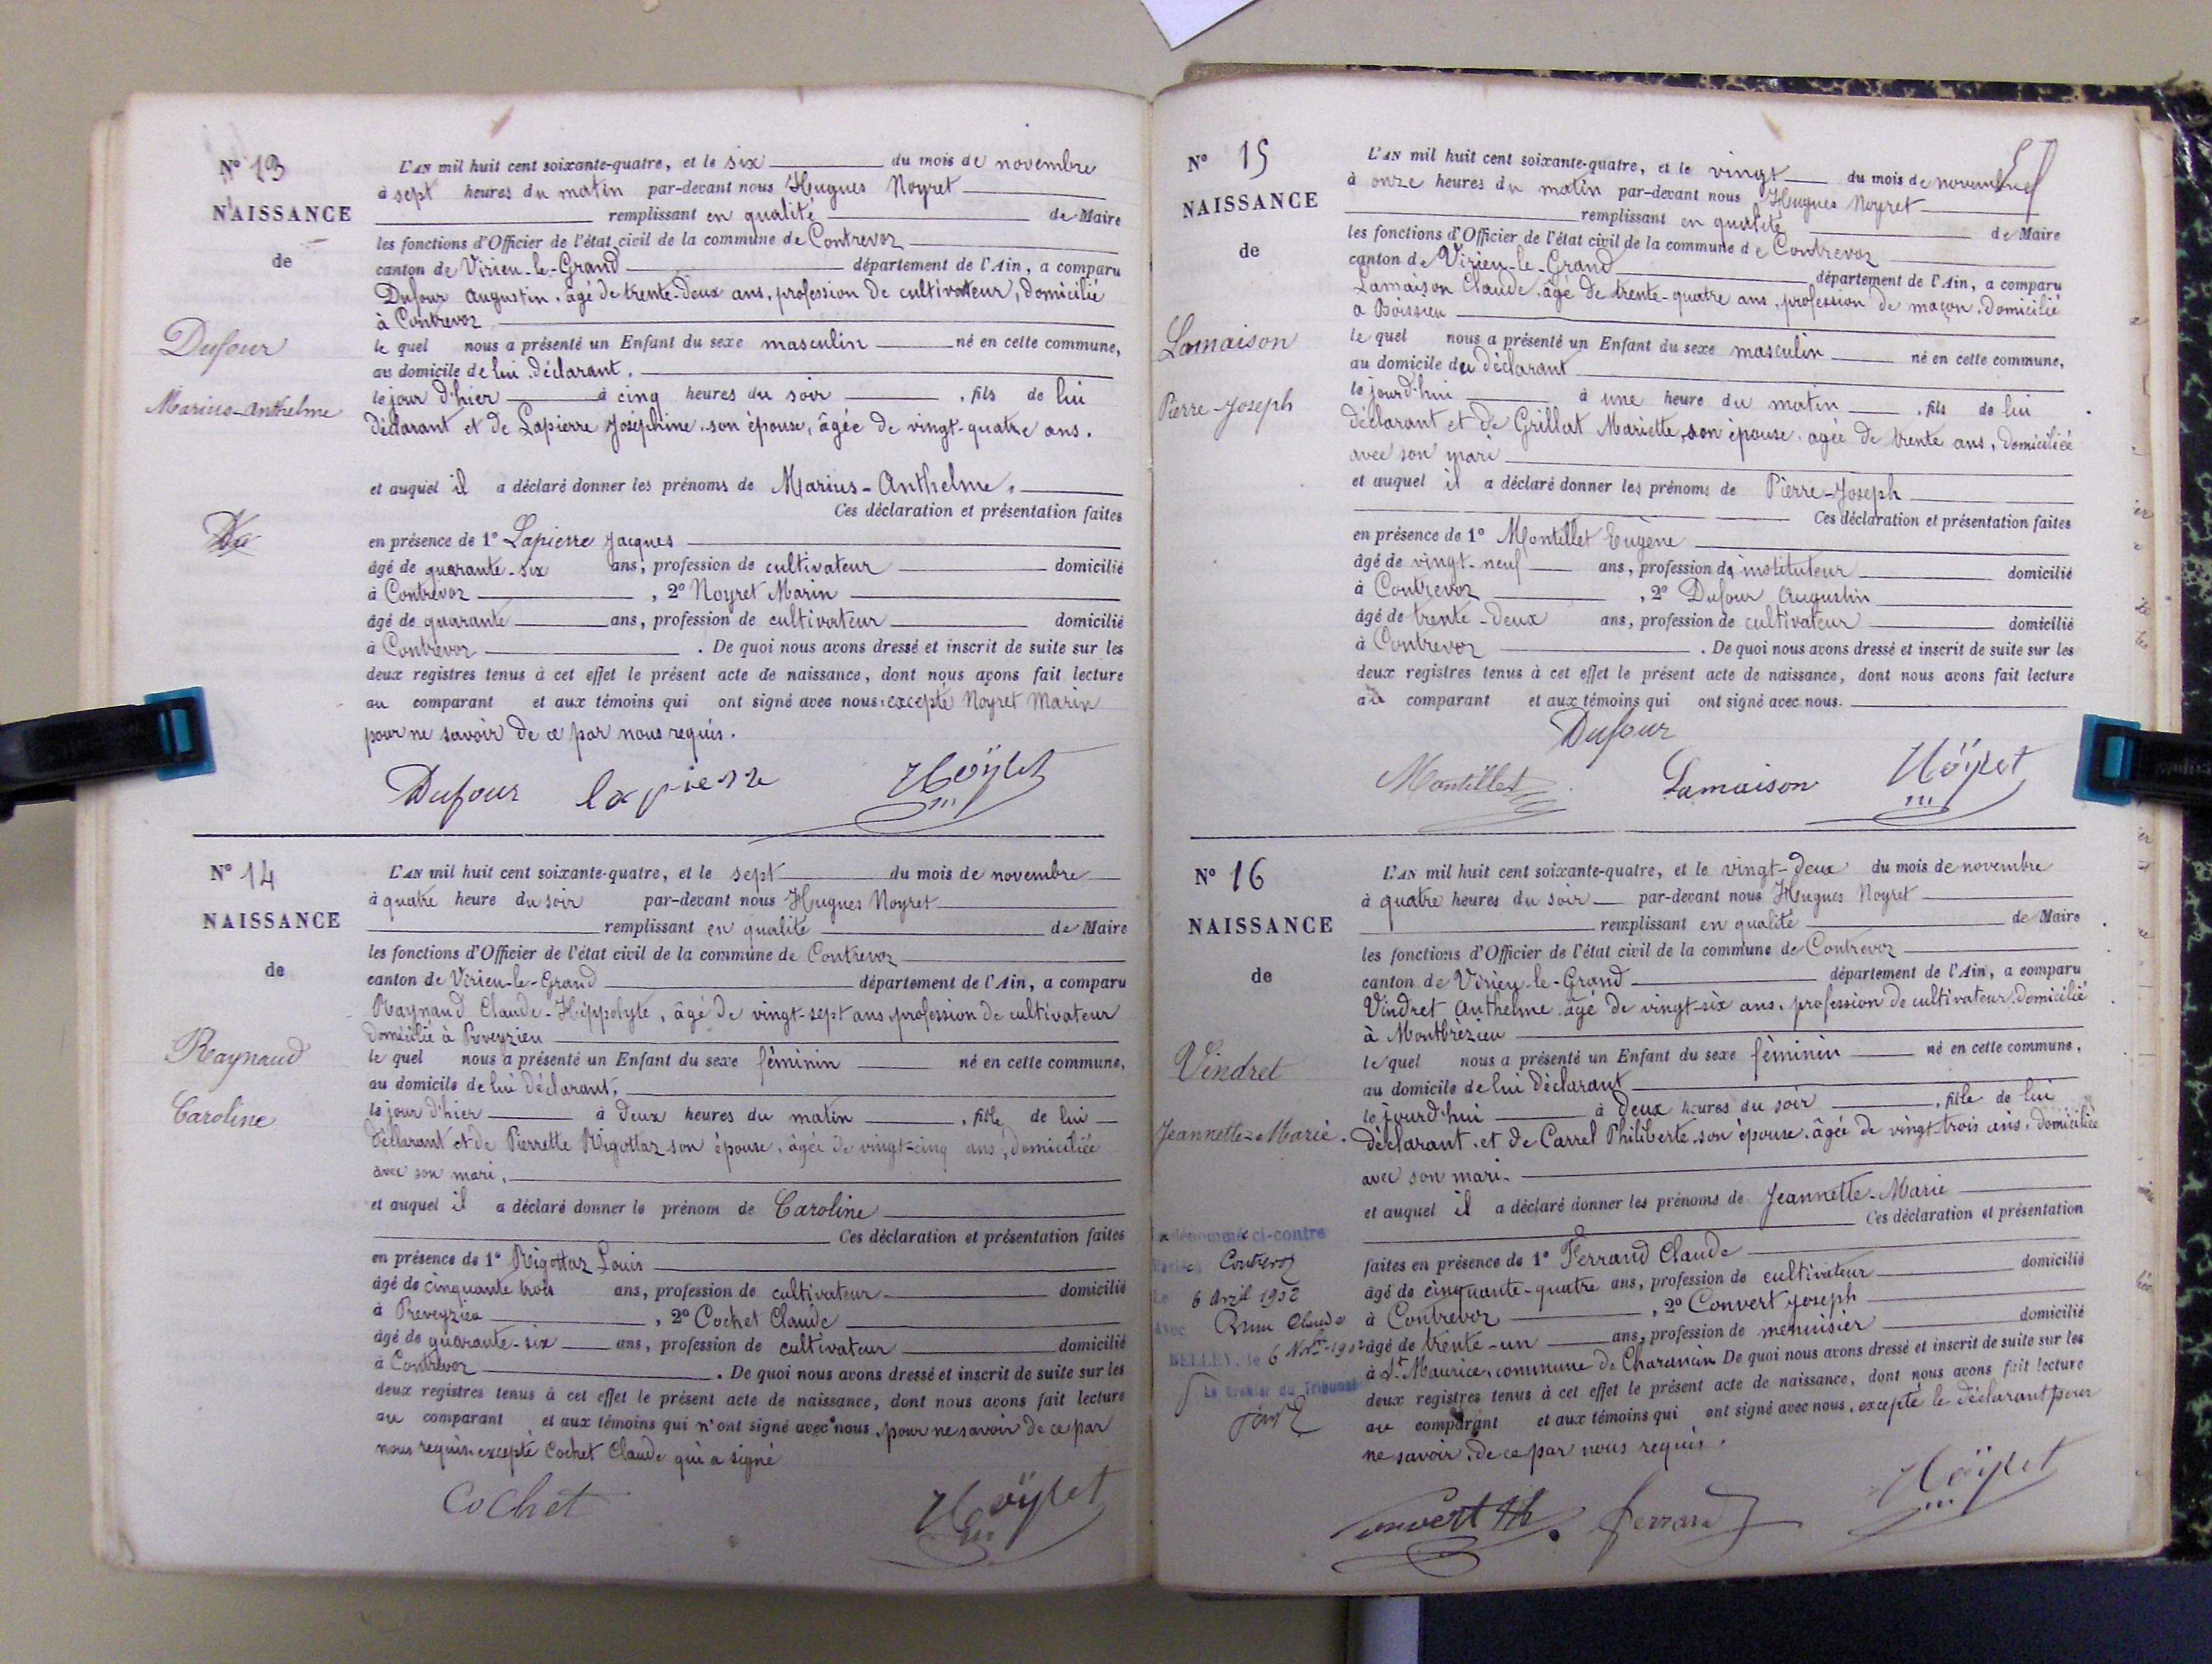 N° 13
NAISSANCE
de
Dufour
Marius-Anthelme
L'AN mil huit cent soixante-quatre, et le six du mois de novembre
à sept heures du matin par-devant nous Hugues Noyret
remplissant en qualité de Maire
les fonctions d'Officier de l'état civil de la commune de Contrevoz
canton de Virieu-le-Grand département de l'Ain, a comparu
Dufour Augustin, âgé de trente-deux ans, profession de cultivateur, domicilié
à Contrevoz
le quel nous a présenté un Enfant du sexe masculin né en cette commune,
au domicile de lui déclarant,
le jour d'hier à cinq heures du soir, fils de lui
déclarant et de Lapierre Joséphine, son épouse, âgée de vingt-quatre ans.
et auquel il a déclaré donner les prénoms de Marius-Anthelme,
Ces déclaration et présentation faites
en présence de 1° Lapierre Jacques
âgé de quarante-six ans, profession de cultivateur domicilié
à Contrevoz, 2° Noyret Marin
âgé de quarante ans, profession de cultivateur domicilié
à Contrevoz. De quoi nous avons dressé et inscrit de suite sur les
deux registres tenus à cet effet le présent acte de naissance, dont nous avons fait lecture
au comparant et aux témoins qui ont signé avec nous, excepté Noyret Marin
pour ne savoir de ce par nous requis.
Dufour lapierre Noÿret
N° 14
NAISSANCE
de
Raynaud
Caroline
L'AN mil huit cent soixante-quatre, et le sept du mois de novembre
à quatre heure du soir par-devant nous Hugues Noyret
remplissant en qualité de Maire
les fonctions d'Officier de l'état civil de la commune de Contrevoz
canton de Virieu-le-Grand département de l'Ain, a comparu
Raynaud Claude-Hippolyte, âgé de vingt-sept ans, profession de cultivateur
domicilié à Preveyzieu
le quel nous a présenté un Enfant du sexe féminin né en cette commune,
au domicile de lui déclarant,
le jour d'hier à deux heures du matin, fille de lui
déclarant et de Pierrette Rigottaz son épouse, âgée de vingt-cinq ans, domiciliée
avec son mari,
et auquel il a déclaré donner le prénom de Caroline
Ces déclaration et présentation faites
en présence de 1° Rigottaz Louis
âgé de cinquante trois ans, profession de cultivateur domicilié
à Preveyzieu, 2° Cochet Claude
âgé de quarante-six ans, profession de cultivateur domicilié
à Contrevoz. De quoi nous avons dressé et inscrit de suite sur les
deux registres tenus à cet effet le présent acte de naissance, dont nous avons fait lecture
au comparant et aux témoins qui n'ont signé avec nous, pour ne savoir de ce par
nous requis excepté Cochet Claude qui a signé
Cochet Noÿret
N° 15
NAISSANCE
de
Lamaison
Pierre-Joseph
L'AN mil huit cent soixante-quatre, et le vingt du mois de novembre
à onze heures du matin par-devant nous Hugues Noyret
remplissant en qualité de Maire
les fonctions d'Officier de l'état civil de la commune de Contrevoz
canton de Virieu-le-Grand département de l'Ain, a comparu
Lamaison Claude, âgé de trente-quatre ans, profession de maçon, domicilié
à Boissieu
le quel nous a présenté un Enfant du sexe masculin né en cette commune,
au domicile du déclarant
le jourd'hui à une heure du matin, fils de lui
déclarant et de Grillat Mariette, son épouse, âgée de trente ans, domiciliée
avec son mari
et auquel il a déclaré donner les prénoms de Pierre-Joseph
Ces déclaration et présentation faites
en présence de 1° Montillet Eugène
âgé de vingt-neuf ans, profession de instituteur domicilié
à Contrevoz, 2° Dufour Augustin
âgé de trente-deux ans, profession de cultivateur domicilié
à Contrevoz. De quoi nous avons dressé et inscrit de suite sur les
deux registres tenus à cet effet le présent acte de naissance, dont nous avons fait lecture
au comparant et aux témoins qui ont signé avec nous.
Dufour
Montillet Lamaison Noÿret
N° 16
NAISSANCE
de
Vindret
Jeannette-Marie.
L'AN mil huit cent soixante-quatre, et le vingt-deux du mois de novembre
à quatre heures du soir par-devant nous Hugues Noyret
remplissant en qualité de Maire
les fonctions d'Officier de l'état civil de la commune de Contrevoz
canton de Virieu-le-Grand département de l'Ain, a comparu
Vindret Anthelme âgé de vingt-six ans, profession de cultivateur domicilié
à Montbrezieu
le quel nous a présenté un Enfant du sexe féminin né en cette commune,
au domicile de lui déclarant
le jourd'hui à deux heures du soir, fille de lui
déclarant et de Carrel Philiberte, son épouse, âgée de vingt-trois ans, domiciliée
avec son mari.
et auquel il a déclaré donner les prénoms de Jeannette-Marie
Ces déclaration et présentation
faites en présence de 1° Ferrand Claude
âgé de cinquante-quatre ans, profession de cultivateur domicilié
à Contrevoz, 2° Convert Joseph
âgé de trente-un ans, profession de menuisier domicilié
à St. Maurice, commune de Charancin De quoi nous avons dressé et inscrit de suite sur les
deux registres tenus à cet effet le présent acte de naissance, dont nous avons fait lecture
au comparant et aux témoins qui ont signé avec nous, excepté le déclarant pour
ne savoir, de ce par nous requis.
ci-contre
Contrevoz
Le 6 Avril 1902
avec Claude
BELLEY, le 6 1902
Le Greffier du Tribunal
Convert Ferrand Noÿret